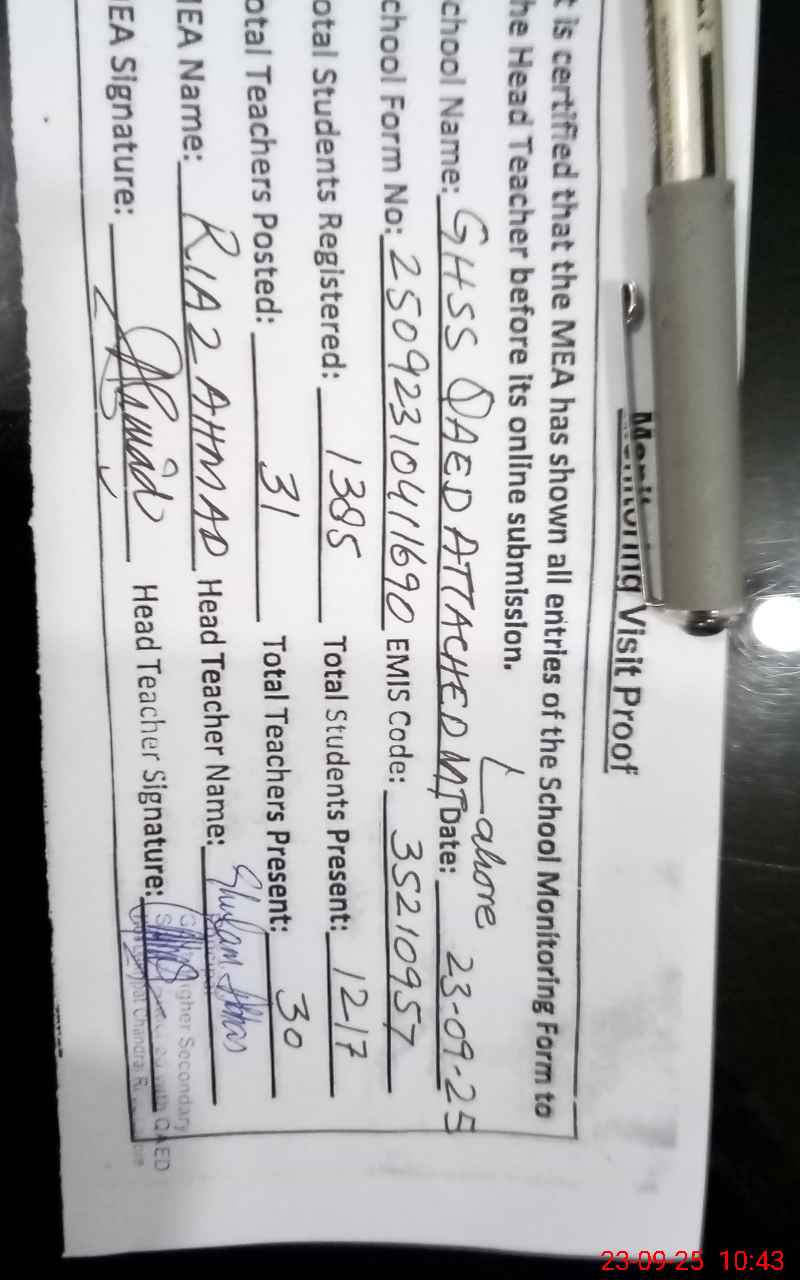 Monitoring Visit Proof
t is certified that the MEA has shown all entries of the School Monitoring Form to
he Head Teacher before its online submission.
chool Name: GHSS QAED ATTACHED MT Lahore Date: 23-09-25
chool Form No: 25092310411690 EMIS Code: 35210957
otal Students Registered: 1385 Total Students Present: 1217
otal Teachers Posted: 31 Total Teachers Present: 30
IEA Name: RIAZ AHMAD Head Teacher Name: Ghulam Abbas
IEA Signature: Ahmad Head Teacher Signature:
Principal
igher Secondary
with QAED
Chindra
23-09-25 10:43